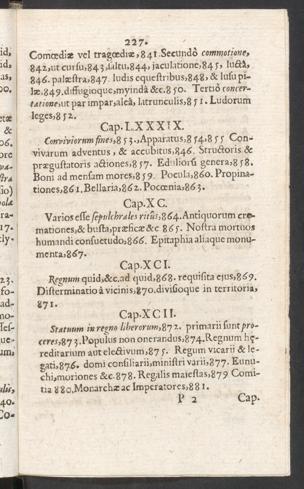 227.
Comœdiæ vel tragœdiæ,841.Secundò commotione,
842,ut cursu,843,saltu,844, iaculatione,845, luctâ,
846. palæstra,847. ludis equestribus,848, & lusu pi-
læ.849,diffugioque,myindâ &c.850. Tertiò concer-
tatione,ut par impar,aleâ, latrunculis,851. Ludorum
leges,852.
Cap. LXXXIX.
Conviviorum fines,853.,Apparatus,854.855 Con-
vivarum adventus, & accubitus,846. Structoris &
prægustatoris actiones,857. Eduliorū genera,858.
Boni ad mensam mores,859. Pocula,860. Propina-
tiones,861,Bellaria,862. Pocœnia,863.
Cap. XC.
Varios esse sepulchrales ritus,864.Antiquorum cre-
mationes,& busta,præficæ &c 865. Nostra mortuos
humandi consuetudo,866. Epitaphia aliaque monu-
menta,867.
Cap. XCI.
Regnum quid,&c.ad quid,868. requisita ejus,869.
Disterminatio à vicinis,870.divisioque in territoria,
871.
Cap. XCII
Statuum in regno liberorum,872. primarii sunt pro-
ceres,873.Populus non onerandus,874.Regnum hę-
reditarium aut electivum,875. Regum vicarii & le-
gati,876. domi consiliarii,ministri varii,877. Eunu-
chi,moriones &c.878. Regalis maiestas,879 Comi-
tia 880,Monarchæ ac Imperatores,881.
P 2 Cap.